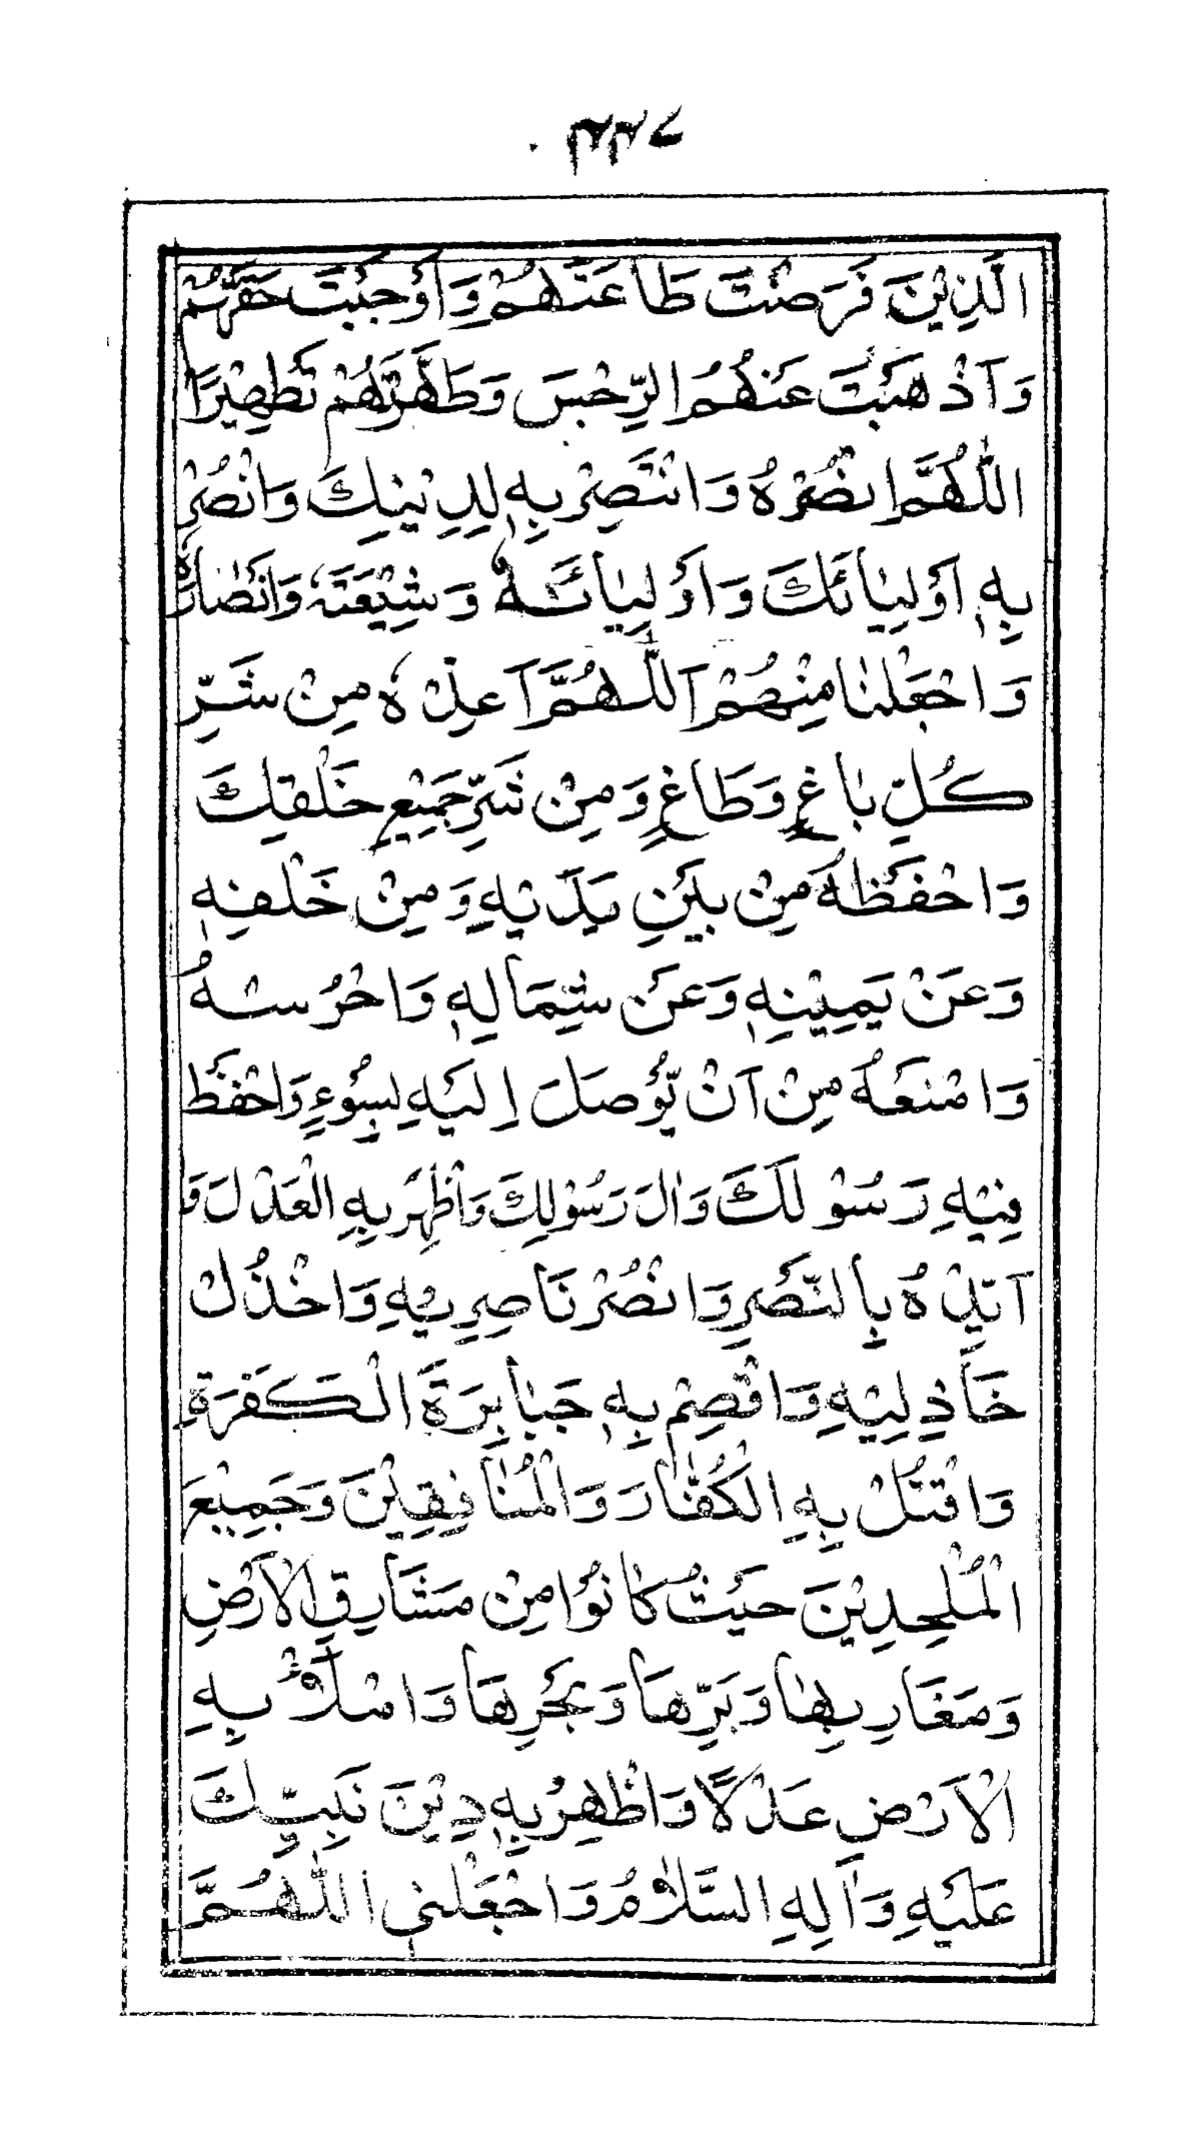 الَّذِيْنَ فَرَضْتَ طَاعَتَهُمْ وَاَوْجَبْتَ حَقَّهُمْ
وَاَذْهَبْتَ عَنْهُمُ الرِّجْسَ وَطَهَّرْتَهُمْ تَطْهِيْرًا
اللّٰهُمَّ انْصُرْهُ وَانْتَصِرْ بِهٖ لِدِيْنِكَ وَانْصُرْ
بِهٖ اَوْلِيَائَكَ وَاَوْلِيَائَهُ وَشِيْعَتَهُ وَاَنْصَارَهُ
وَاجْعَلْنَا مِنْهُمْ اَللّٰهُمَّ اَعِذْهُ مِنْ شَرِّ
كُلِّ بَاغٍ وَطَاغٍ وَمِنْ شَرِّ جَمِيْعِ خَلْقِكَ
وَاحْفَظْهُ مِنْ بَيْنِ يَدَيْهِ وَمِنْ خَلْفِهٖ
وَعَنْ يَمِيْنِهٖ وَعَنْ شِمَالِهٖ وَاحْرُسْهُ
وَامْنَعْهُ مِنْ اَنْ يُّوْصَلَ اِلَيْهِ بِسُوْءٍ وَاحْفَظْ
فِيْهِ رَسُوْلَكَ وَاٰلَ رَسُوْلِكَ وَاَظْهِرْ بِهِ الْعَدْلَ وَ
اَيِّدْهُ بِالنَّصْرِ وَانْصُرْ نَاصِرِيْهِ وَاخْذُلْ
خَاذِلِيْهِ وَاقْصِمْ بِهٖ جَبَابِرَةَ الْكَفَرَةِ
وَاقْتُلْ بِهِ الْكُفَّارَ وَالْمُنَافِقِيْنَ وَجَمِيْعَ
الْمُلْحِدِيْنَ حَيْثُ كَانُوْا مِنْ مَشَارِقِ الْاَرْضِ
وَمَغَارِبِهَا وَبَرِّهَا وَبَحْرِهَا وَامْلَاْ بِهِ
الْاَرْضَ عَدْلًا وَاَظْهِرْ بِهٖ دِيْنَ نَبِيِّكَ
عَلَيْهِ وَاٰلِهِ السَّلَامُ وَاجْعَلْنِي اللّٰهُمَّ